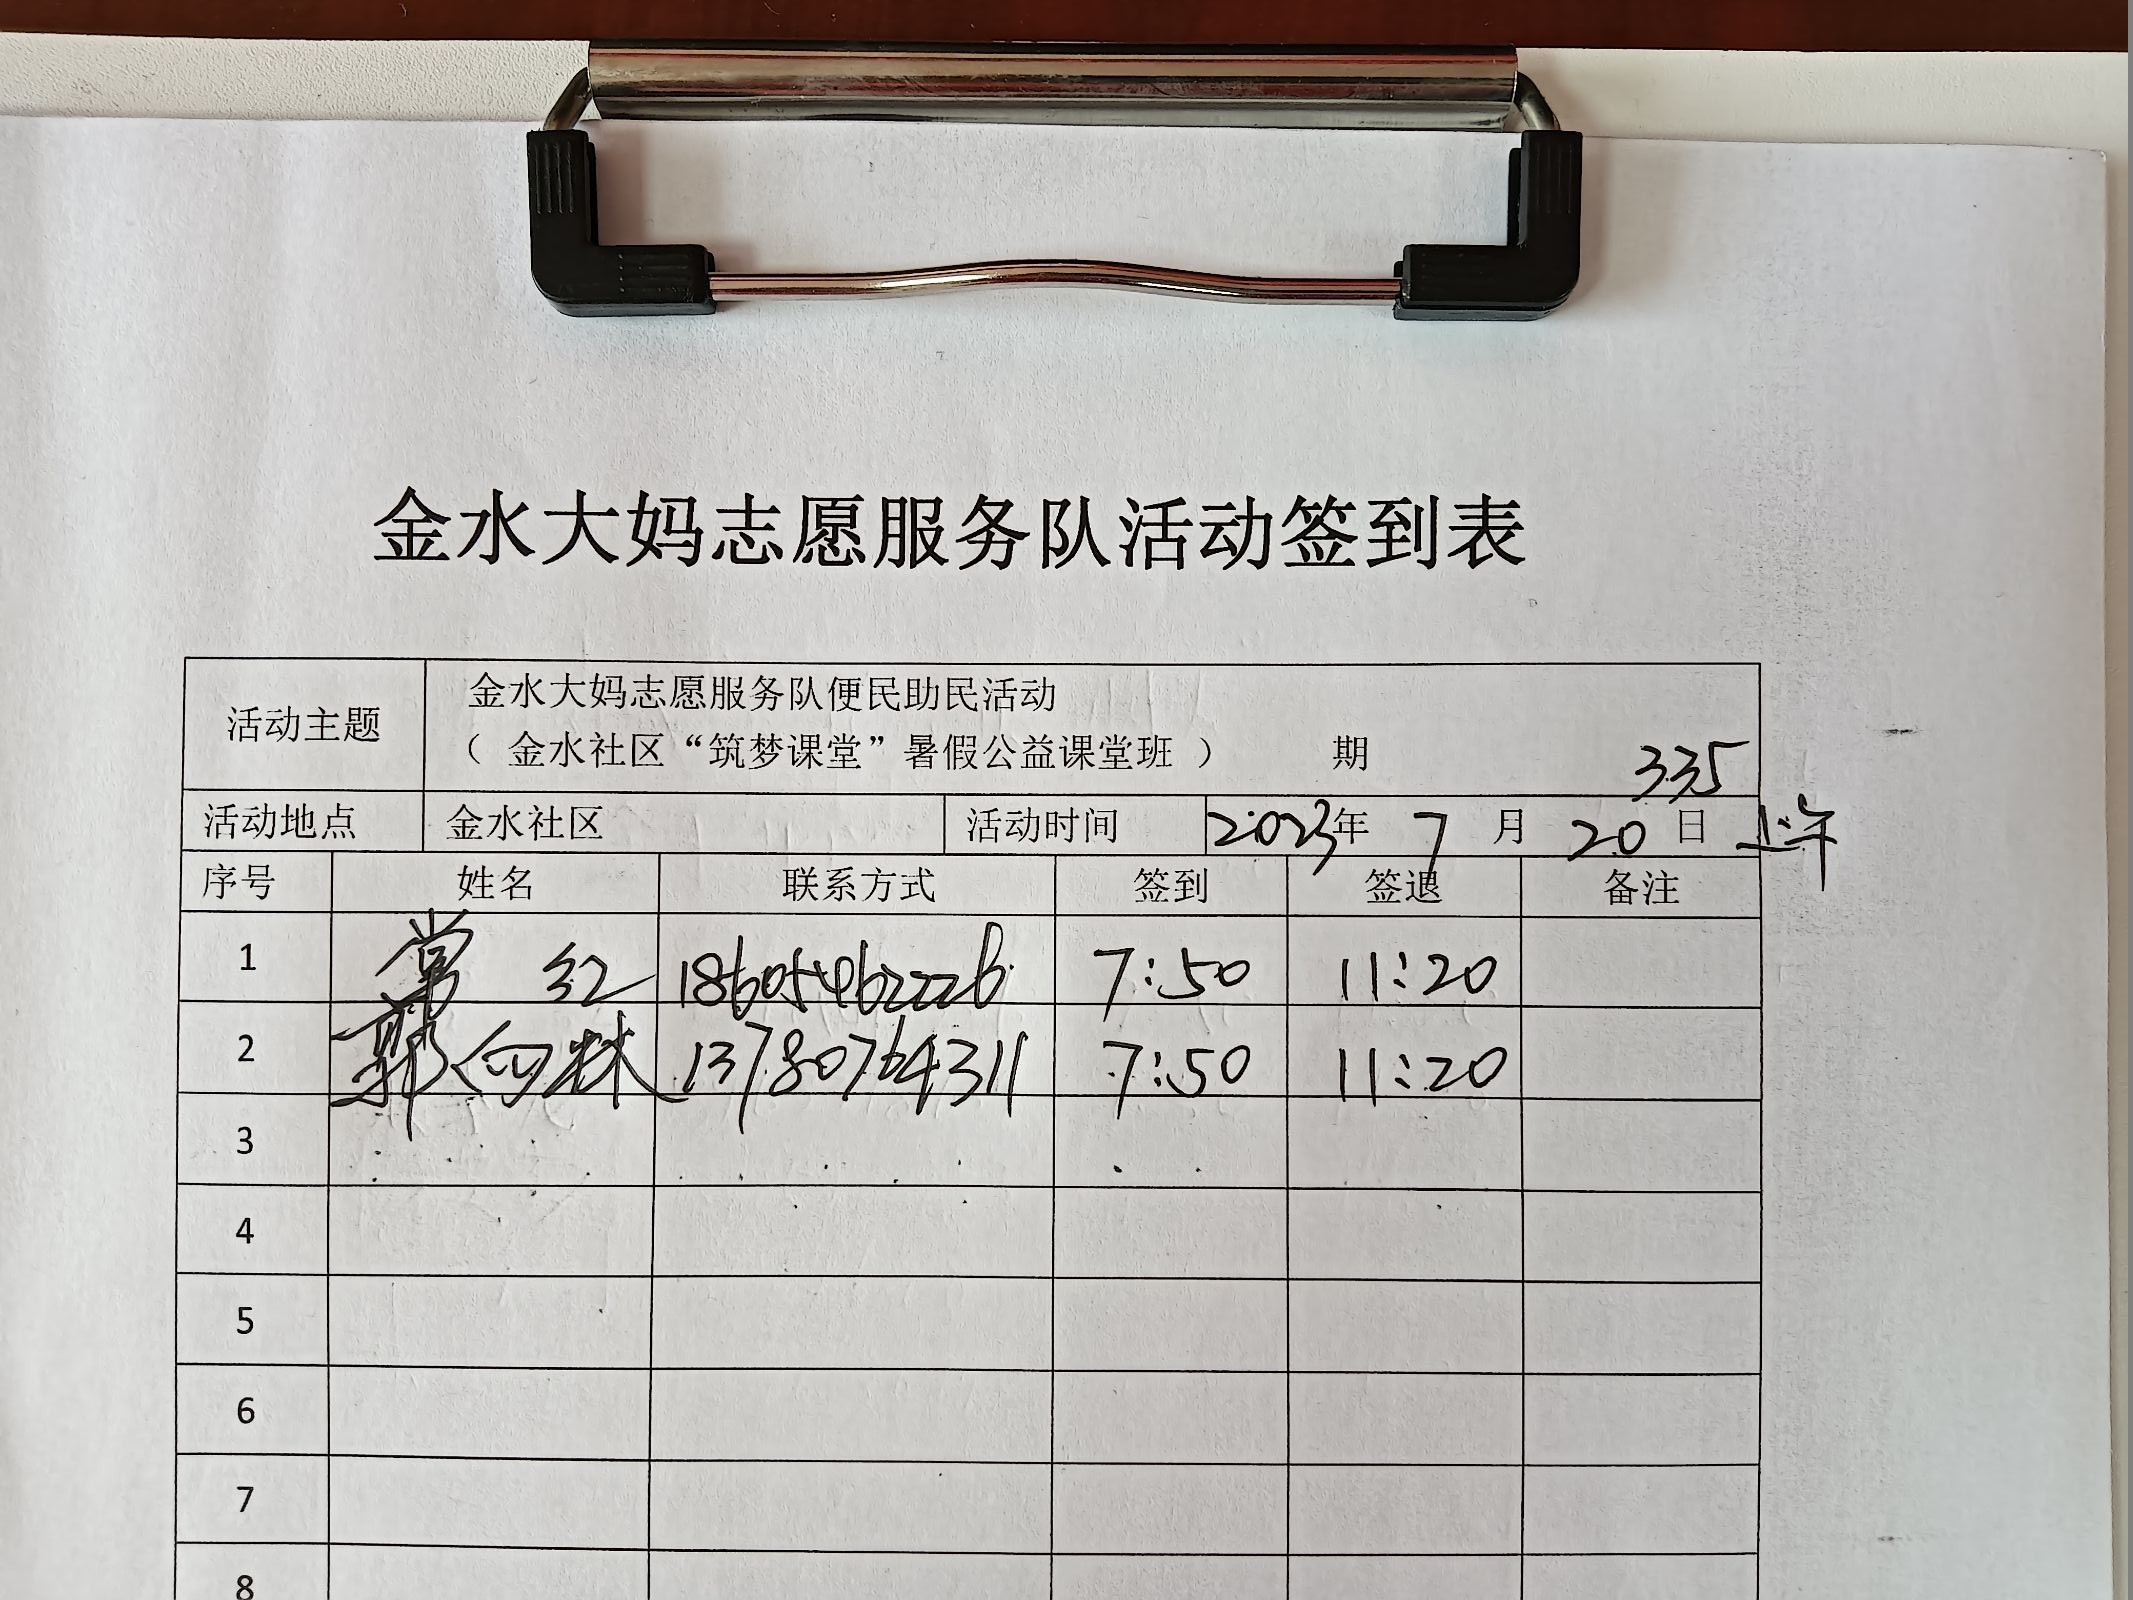 金水大妈志愿服务队活动签到表
活动主题 金水大妈志愿服务队便民助民活动
（ 金水社区“筑梦课堂”暑假公益课堂班 ） 期 335
活动地点 金水社区 活动时间 2023年 7 月 20 日 上午
序号 姓名 联系方式 签到 签退 备注
1 常红 18605462226 7:50 11:20
2 郭向林 13780764311 7:50 11:20
3
4
5
6
7
8